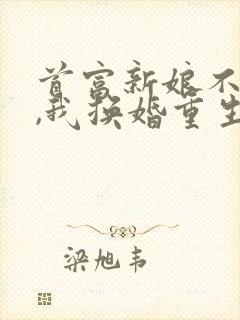 首富新娘不
,我换婚重生
梁旭韦